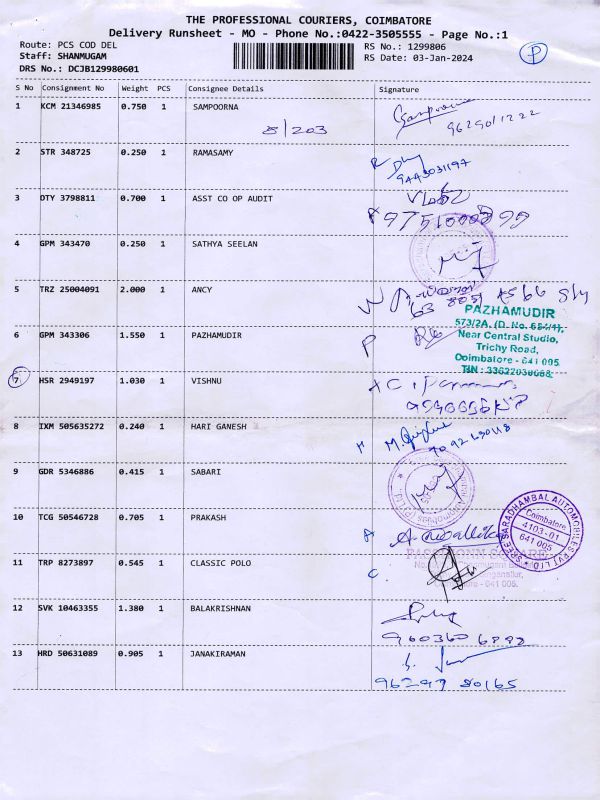 THE PROFESSIONAL COURIERS, COIMBATORE
Delivery Runsheet - MO - Phone No.:0422-3505555 - Page No.:1
Route: PCS COD DEL RS No.: 1299806
Staff: SHANMUGAM RS Date: 03-Jan-2024 P
DRS No.: DCJB129980601
S No Consignment No Weight PCS Consignee Details Signature
1 KCM 21346985 0.750 1 SAMPOORNA
8/203
2 STR 348725 0.250 1 RAMASAMY
9443031197
3 DTY 3798811 0.700 1 ASST CO OP AUDIT
4 GPM 343470 0.250 1 SATHYA SEELAN
5 TRZ 25004091 2.000 1 ANCY
PAZHAMUDIR
573/2A, (D. No. 654/4),
Near Central Studio,
Trichy Road,
Coimbatore - 641 005
TIN : 33622030068
6 GPM 343306 1.550 1 PAZHAMUDIR
P
7 HSR 2949197 1.030 1 VISHNU
8 IXM 505635272 0.240 1 HARI GANESH
9 GDR 5346886 0.415 1 SABARI
10 TCG 50546728 0.705 1 PRAKASH
SREE SARADHAMBAL AUTOMOBILES PVT LTD
Coimbatore
4103-01
641 005
11 TRP 8273897 0.545 1 CLASSIC POLO
C.
12 SVK 10463355 1.380 1 BALAKRISHNAN
13 HRD 50631089 0.905 1 JANAKIRAMAN